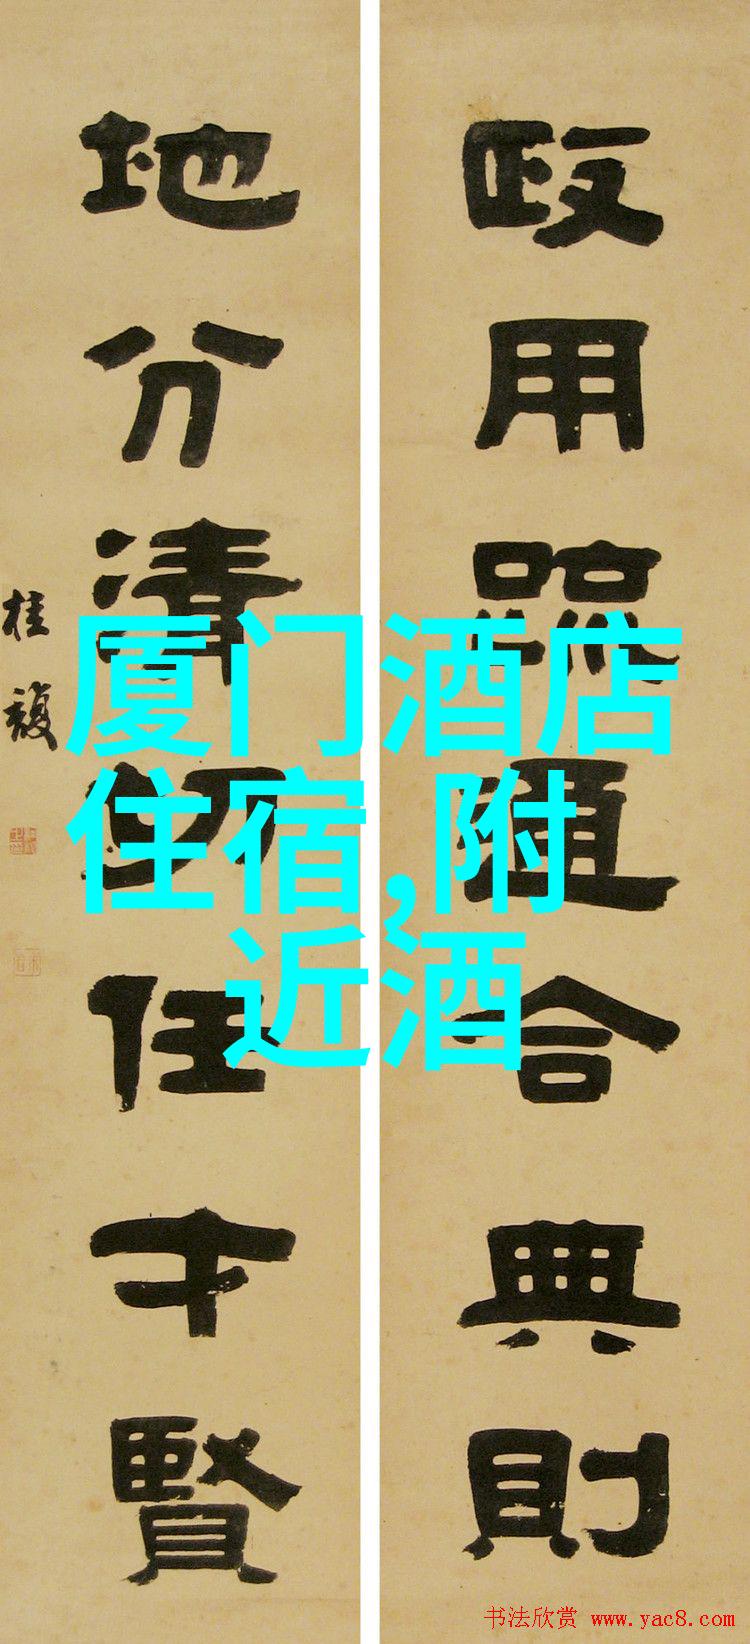 政用疏通合典則
地分清切任才賢
桂馥
厦门酒店
住宿,附
近酒
书法欣赏 www.yac8.com